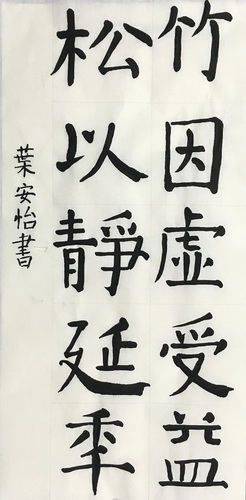 竹因虛受益
松以靜延年
葉安怡書